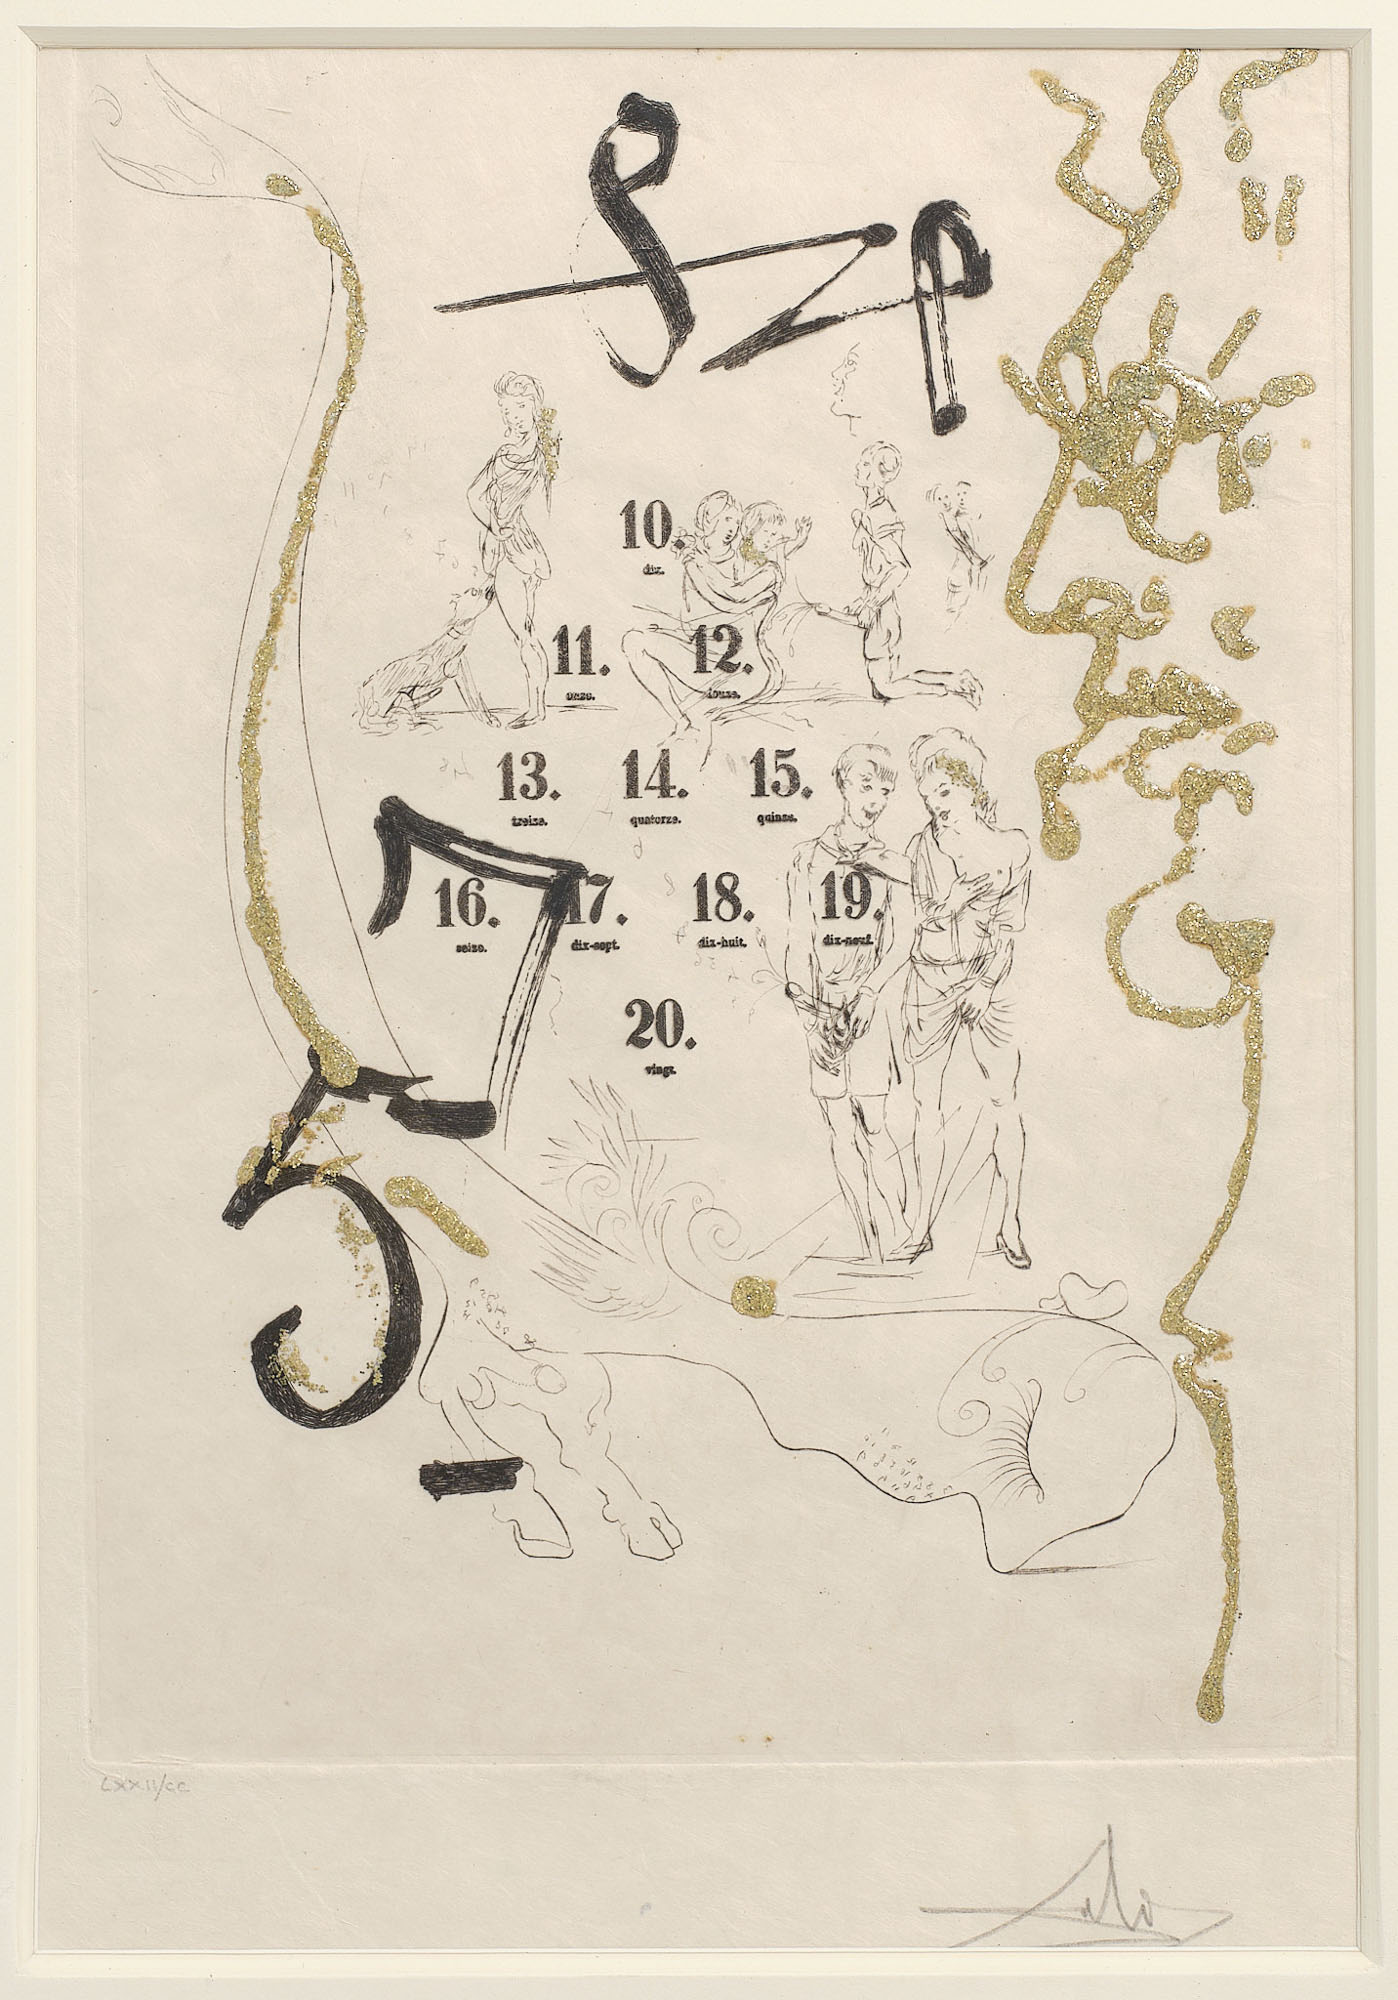 10.
dix.
11. 12.
onze. douze.
13. 14. 15.
treize. quatorze. quinze.
16. 17. 18. 19.
seize. dix-sept. dix-huit. dix-neuf.
20.
vingt.
LXXII/CC
Dalí